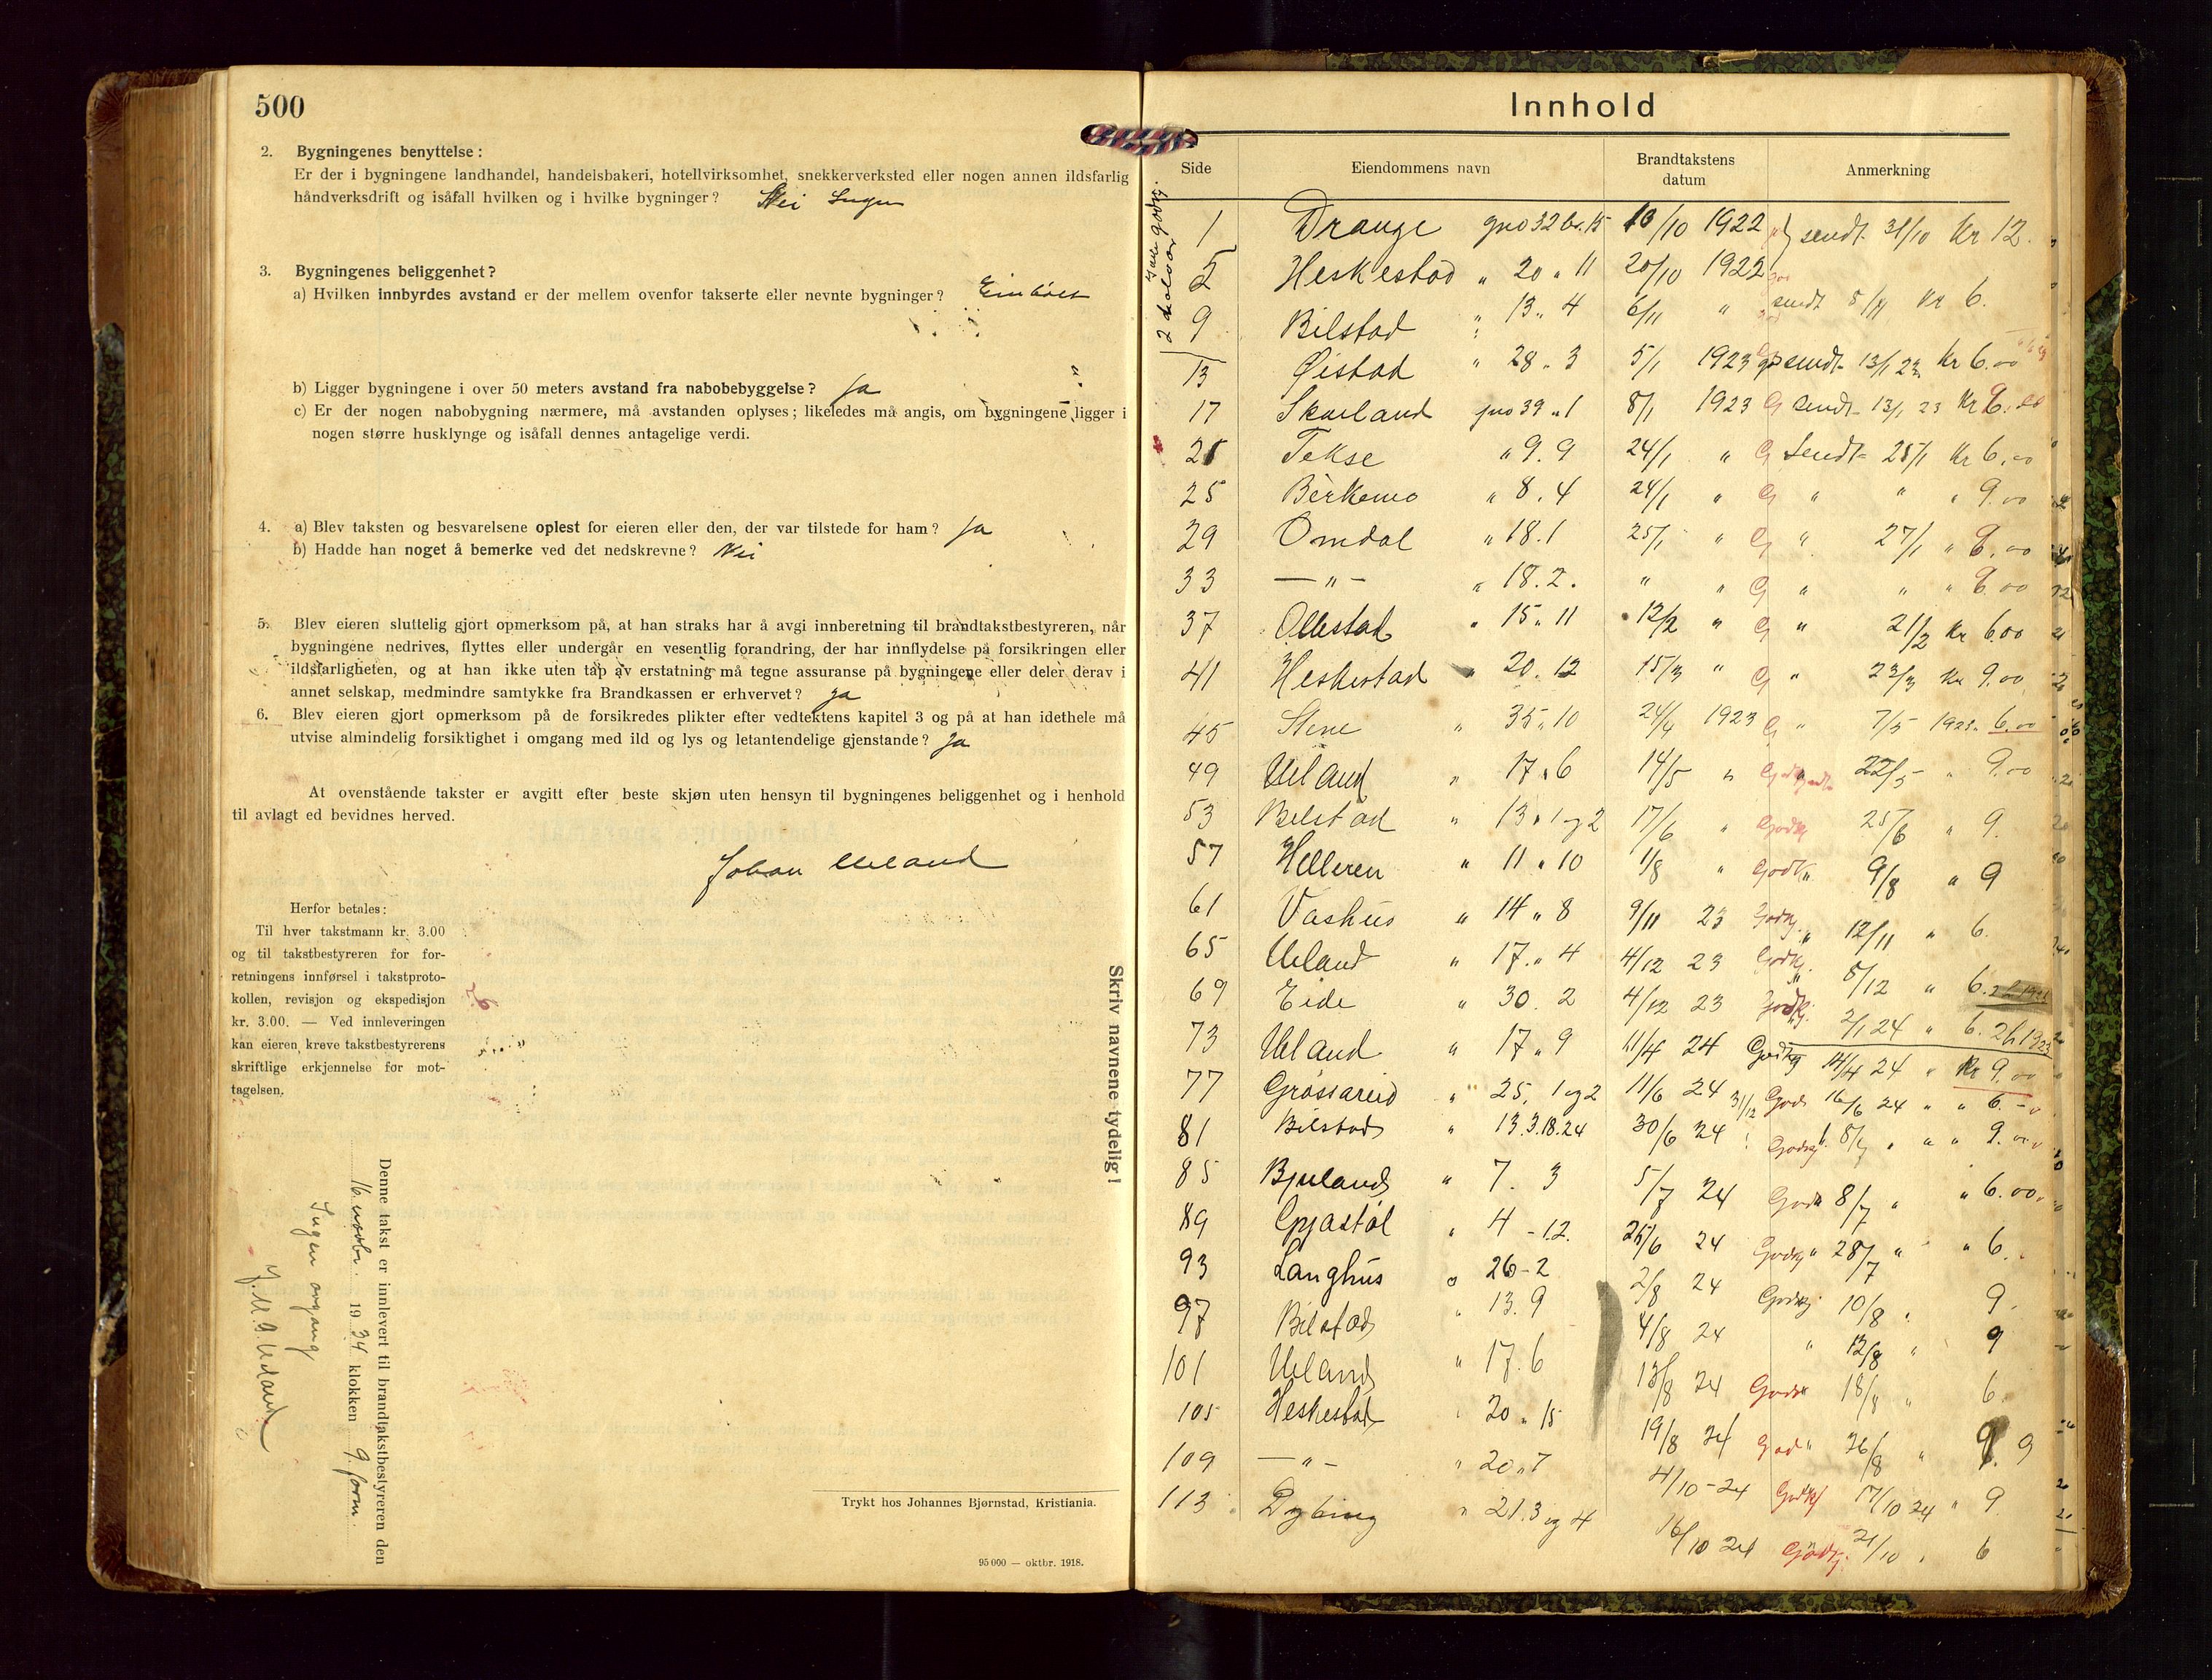 500
2. Bygningenes benyttelse:
Er der i bygningene landhandel, handelsbakeri, hotellvirksomhet, snekkerverksted eller nogen annen ildsfarlig
håndverksdrift og isåfall hvilken og i hvilke bygninger? Nei Ingen
3. Bygningenes beliggenhet?
a) Hvilken innbyrdes avstand er der mellem ovenfor takserte eller nevnte bygninger?
b) Ligger bygningene i over 50 meters avstand fra nabobebyggelse? Ja
c) Er der nogen nabobygning nærmere, må avstanden oplyses; likeledes må angis, om bygningene ligger i
nogen større husklynge og isåfall dennes antagelige verdi.
4. a) Blev taksten og besvarelsene oplest for eieren eller den, der var tilstede for ham? Ja
b) Hadde han noget å bemerke ved det nedskrevne? Nei
5. Blev eieren sluttelig gjort opmerksom på, at han straks har å avgi innberetning til brandtakstbestyreren, når
bygningene nedrives, flyttes eller undergår en vesentlig forandring, der har innflydelse på forsikringen eller
ildsfarligheten, og at han ikke uten tap av erstatning må tegne assuranse på bygningene eller deler derav i
annet selskap, medmindre samtykke fra Brandkassen er erhvervet? Ja
6. Blev eieren gjort opmerksom på de forsikredes plikter efter vedtektens kapitel 3 og på at han idethele må
utvise almindelig forsiktighet i omgang med ild og lys og letantendelige gjenstande? Ja
At ovenstående takster er avgitt efter beste skjøn uten hensyn til bygningenes beliggenhet og i henhold
til avlagt ed bevidnes herved.
Johan Ueland
Herfor betales:
Til hver takstmann kr. 3.00
og til takstbestyreren for for-
retningens innførsel i takstproto-
kollen, revisjon og ekspedisjon
kr. 3.00. — Ved innleveringen
kan eieren kreve takstbestyrerens
skriftlige erkjennelse for mot-
tagelsen.
Skriv navnene tydelig!
Denne takst er innlevert til brandtakstbestyreren den
16 novbr. 1934 klokken 9 form.
Ingen avgang
Trykt hos Johannes Bjørnstad, Kristiania.
95 000 — oktbr. 1918.
Innhold
Side Eiendommens navn Brandtakstens datum Anmerkning
1 Drange gno 32 br. 15 10/10 1922 sendt 31/10 Kr 12.
5 Heskestad " 20 " 11 20/10 1922
9 Bilstad " 13 " 4 6/11 " sendt 8/11 Kr 6.
13 Øistad " 28 " 3 5/1 1923 sendt 13/1 23 Kr 6.00
17 Skarland gno 39 " 1 8/1 1923 G sendt 13/1 23 Kr 6.00
21 Tekse " 9. 9 24/1 " G Sendt 25/1 Kr 6.00
25 Berkemo " 8. 4 24/1 " G " " " 9.00
29 Omdal " 18. 1 25/1 " G " 27/1 " 6.00
33 — " — " 18. 2. " " G " " " 6.00
37 Ollestad " 15 " 11 12/2 " G " 21/2 Kr 6.00
41 Heskestad " 20. 12 15/3 " G " 23/3 Kr 9.00
45 Stene " 35 " 10 24/4 1923 G " 7/5 1923 6.00
49 Ueland " 17 " 6 14/5 " 22/5 " 9.00
53 Bilstad " 13 " 1 og 2 17/6 " Godkj 25/6 " 9.
57 Helleren " 11 " 10 1/8 " Godk " 9/8 " 9
61 Vashus " 14 " 8 9/11 23 Godkj. " 12/11 " 6.
65 Ueland " 17. " 4 4/12 23 Godkj. " 8/12 " 6.
69 Eide " 30. 2 4/12 23 Godkj. 2/1 24 " 6.
73 Ueland " 17 " 9 11/4 24 Godkj 14/4 24 " Kr 9.00
77 Grøsareid " 25. 1 og 2 11/6 24 31/12 Godk 16/6 24 " " 6.
81 Bilstad " 13. 3. 18. 24 30/6 24 Godkj 8/7 " " " 9.00
85 Bjuland " 7. 3 5/7 24 Godk 8/7 " " 6.00
89 Gjastøl " 4 - 12. 25/6 24 Godkj " 28/7 " " 6.
93 Langhus " 26 - 2 2/8 24 Godkj 10/8 " 9.
97 Bilstad " 13. 9 4/8 24 " 12/8 " 9
101 Ueland " 17. 6 13/8 24 Godk 18/8 " 6.
105 Heskestad " 20 " 15 19/8 24 God " 26/8 " 9
109 — " — " 20 " 7 4/10 - 24 Godkj 17/10 24 " 9.
113 Dybing " 21. 3 og 4 16/10 24 Godkj. 21/10 " 6